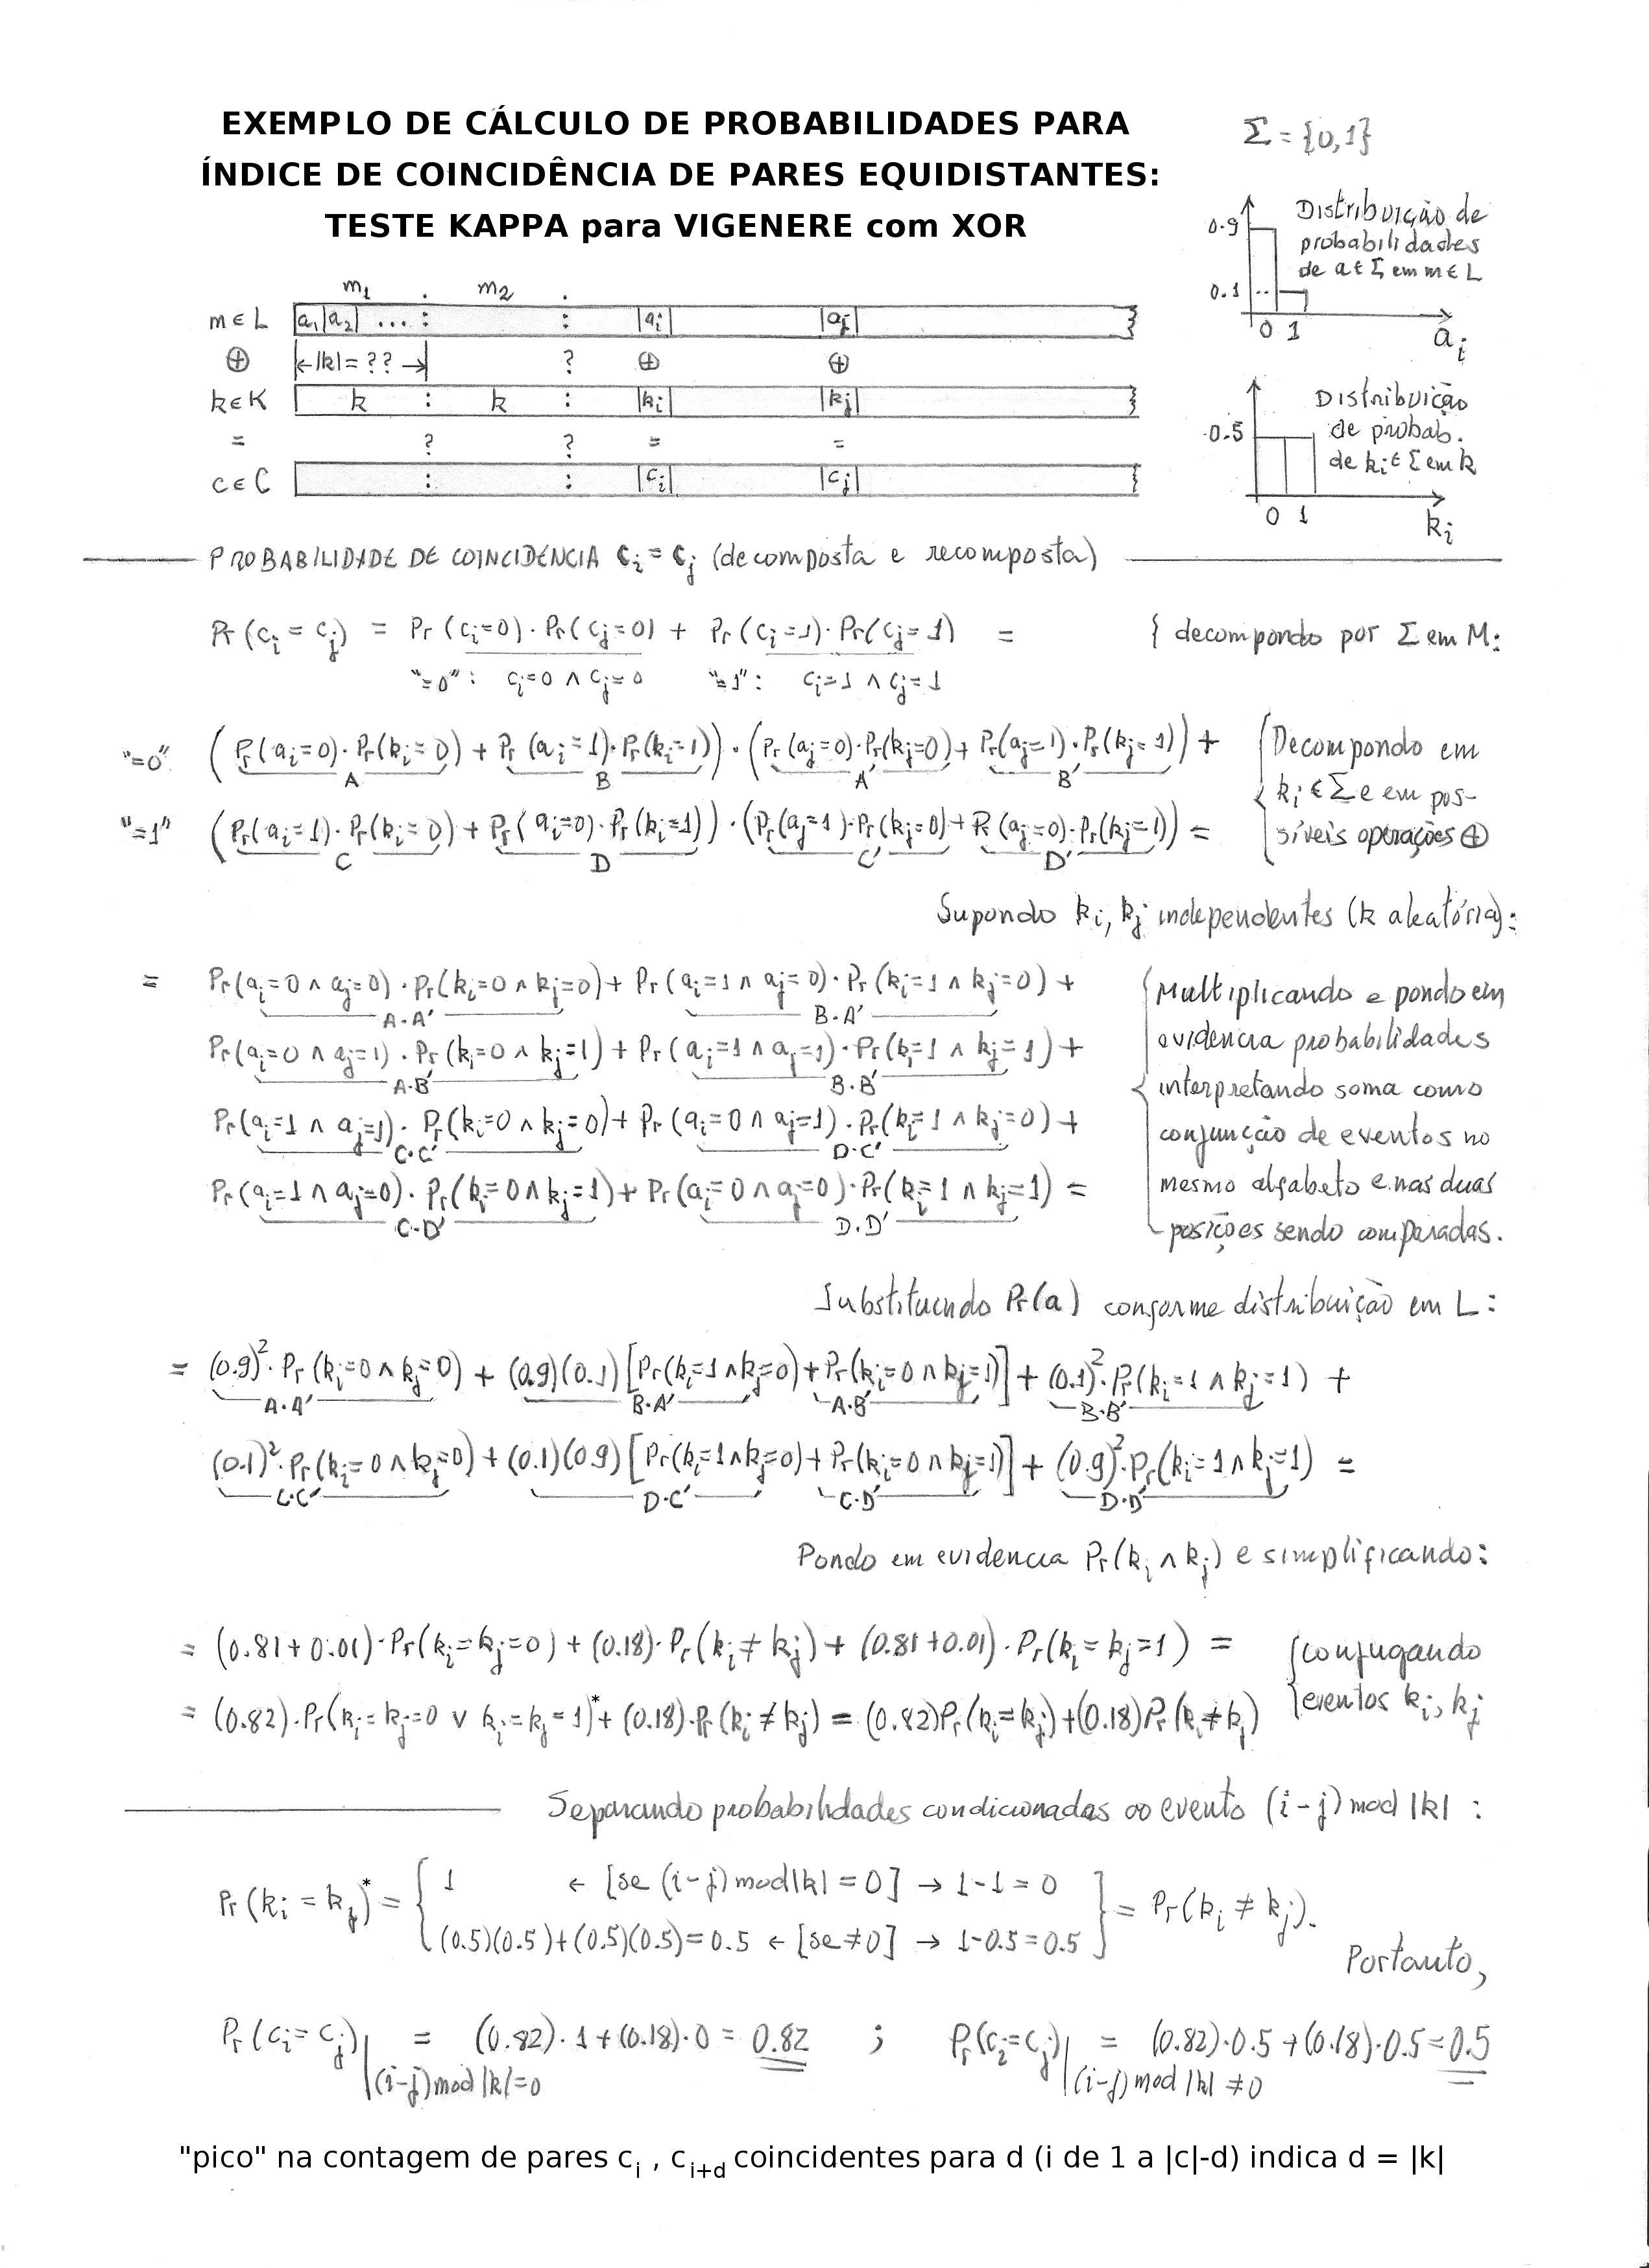 EXEMPLO DE CÁLCULO DE PROBABILIDADES PARA
ÍNDICE DE COINCIDÊNCIA DE PARES EQUIDISTANTES:
TESTE KAPPA para VIGENERE com XOR
Σ = {0,1}
0.9
0.1
0 1
a_i
Distribuição de
probabilidades
de a ∈ Σ em m ∈ L
m₁ : m₂ :
m ∈ L |a₁|a₂| ... : : |a_i| |a_j|
⊕ |← |k| = ?? →| ? ⊕ ⊕
k ∈ K k : k : |k_i| |k_j|
= ? ? = =
c ∈ C : : |c_i| |c_j|
0.5
0 1
k_i
Distribuição
de probab.
de k_i ∈ Σ em k
PROBABILIDADE DE COINCIDÊNCIA c_i = c_j (decomposta e recomposta)
Pr(c_i = c_j) = Pr(c_i=0)·Pr(c_j=0) + Pr(c_i=1)·Pr(c_j=1) = { decompondo por Σ em M:
"=0": c_i=0 ∧ c_j=0 "=1": c_i=1 ∧ c_j=1
"=0" (Pr(a_i=0)·Pr(k_i=0) + Pr(a_i=1)·Pr(k_i=1))·(Pr(a_j=0)·Pr(k_j=0) + Pr(a_j=1)·Pr(k_j=1)) +
A B A' B'
"=1" (Pr(a_i=1)·Pr(k_i=0) + Pr(a_i=0)·Pr(k_i=1))·(Pr(a_j=1)·Pr(k_j=0) + Pr(a_j=0)·Pr(k_j=1)) =
C D C' D'
Decompondo em
k_i ∈ Σ e em pos-
síveis operações ⊕
Supondo k_i, k_j independentes (k aleatória):
= Pr(a_i=0 ∧ a_j=0)·Pr(k_i=0 ∧ k_j=0) + Pr(a_i=1 ∧ a_j=0)·Pr(k_i=1 ∧ k_j=0) +
A·A' B·A'
Pr(a_i=0 ∧ a_j=1)·Pr(k_i=0 ∧ k_j=1) + Pr(a_i=1 ∧ a_j=1)·Pr(k_i=1 ∧ k_j=1) +
A·B' B·B'
Pr(a_i=1 ∧ a_j=1)·Pr(k_i=0 ∧ k_j=0) + Pr(a_i=0 ∧ a_j=1)·Pr(k_i=1 ∧ k_j=0) +
C·C' D·C'
Pr(a_i=1 ∧ a_j=0)·Pr(k_i=0 ∧ k_j=1) + Pr(a_i=0 ∧ a_j=0)·Pr(k_i=1 ∧ k_j=1) =
C·D' D·D'
Multiplicando e pondo em
evidencia probabilidades
interpretando soma como
conjunção de eventos no
mesmo alfabeto e nas duas
posições sendo comparadas.
Substituindo Pr(a) conforme distribuição em L:
= (0.9)²·Pr(k_i=0 ∧ k_j=0) + (0.9)(0.1)[Pr(k_i=1 ∧ k_j=0) + Pr(k_i=0 ∧ k_j=1)] + (0.1)²·Pr(k_i=1 ∧ k_j=1) +
A·A' B·A' A·B' B·B'
(0.1)²·Pr(k_i=0 ∧ k_j=0) + (0.1)(0.9)[Pr(k_i=1 ∧ k_j=0) + Pr(k_i=0 ∧ k_j=1)] + (0.9)²·Pr(k_i=1 ∧ k_j=1) =
C·C' D·C' C·D' D·D'
Pondo em evidencia Pr(k_i ∧ k_j) e simplificando:
= (0.81+0.01)·Pr(k_i=k_j=0) + (0.18)·Pr(k_i ≠ k_j) + (0.81+0.01)·Pr(k_i=k_j=1) =
= (0.82)·Pr(k_i=k_j=0 ∨ k_i=k_j=1)* + (0.18)·Pr(k_i ≠ k_j) = (0.82)Pr(k_i=k_j) + (0.18)Pr(k_i≠k_j)
{conjugando
eventos k_i, k_j
Separando probabilidades condicionadas ao evento (i-j) mod |k| :
Pr(k_i = k_j)* = { 1 ← [se (i-j) mod |k| = 0] → 1-1 = 0
(0.5)(0.5)+(0.5)(0.5) = 0.5 ← [se ≠ 0] → 1-0.5 = 0.5 } = Pr(k_i ≠ k_j).
Portanto,
Pr(c_i = c_j)|(i-j) mod |k| = 0 = (0.82)·1 + (0.18)·0 = 0.82 ; Pr(c_i = c_j)|(i-j) mod |k| ≠ 0 = (0.82)·0.5 + (0.18)·0.5 = 0.5
"pico" na contagem de pares c_i , c_i+d coincidentes para d (i de 1 a |c|-d) indica d = |k|